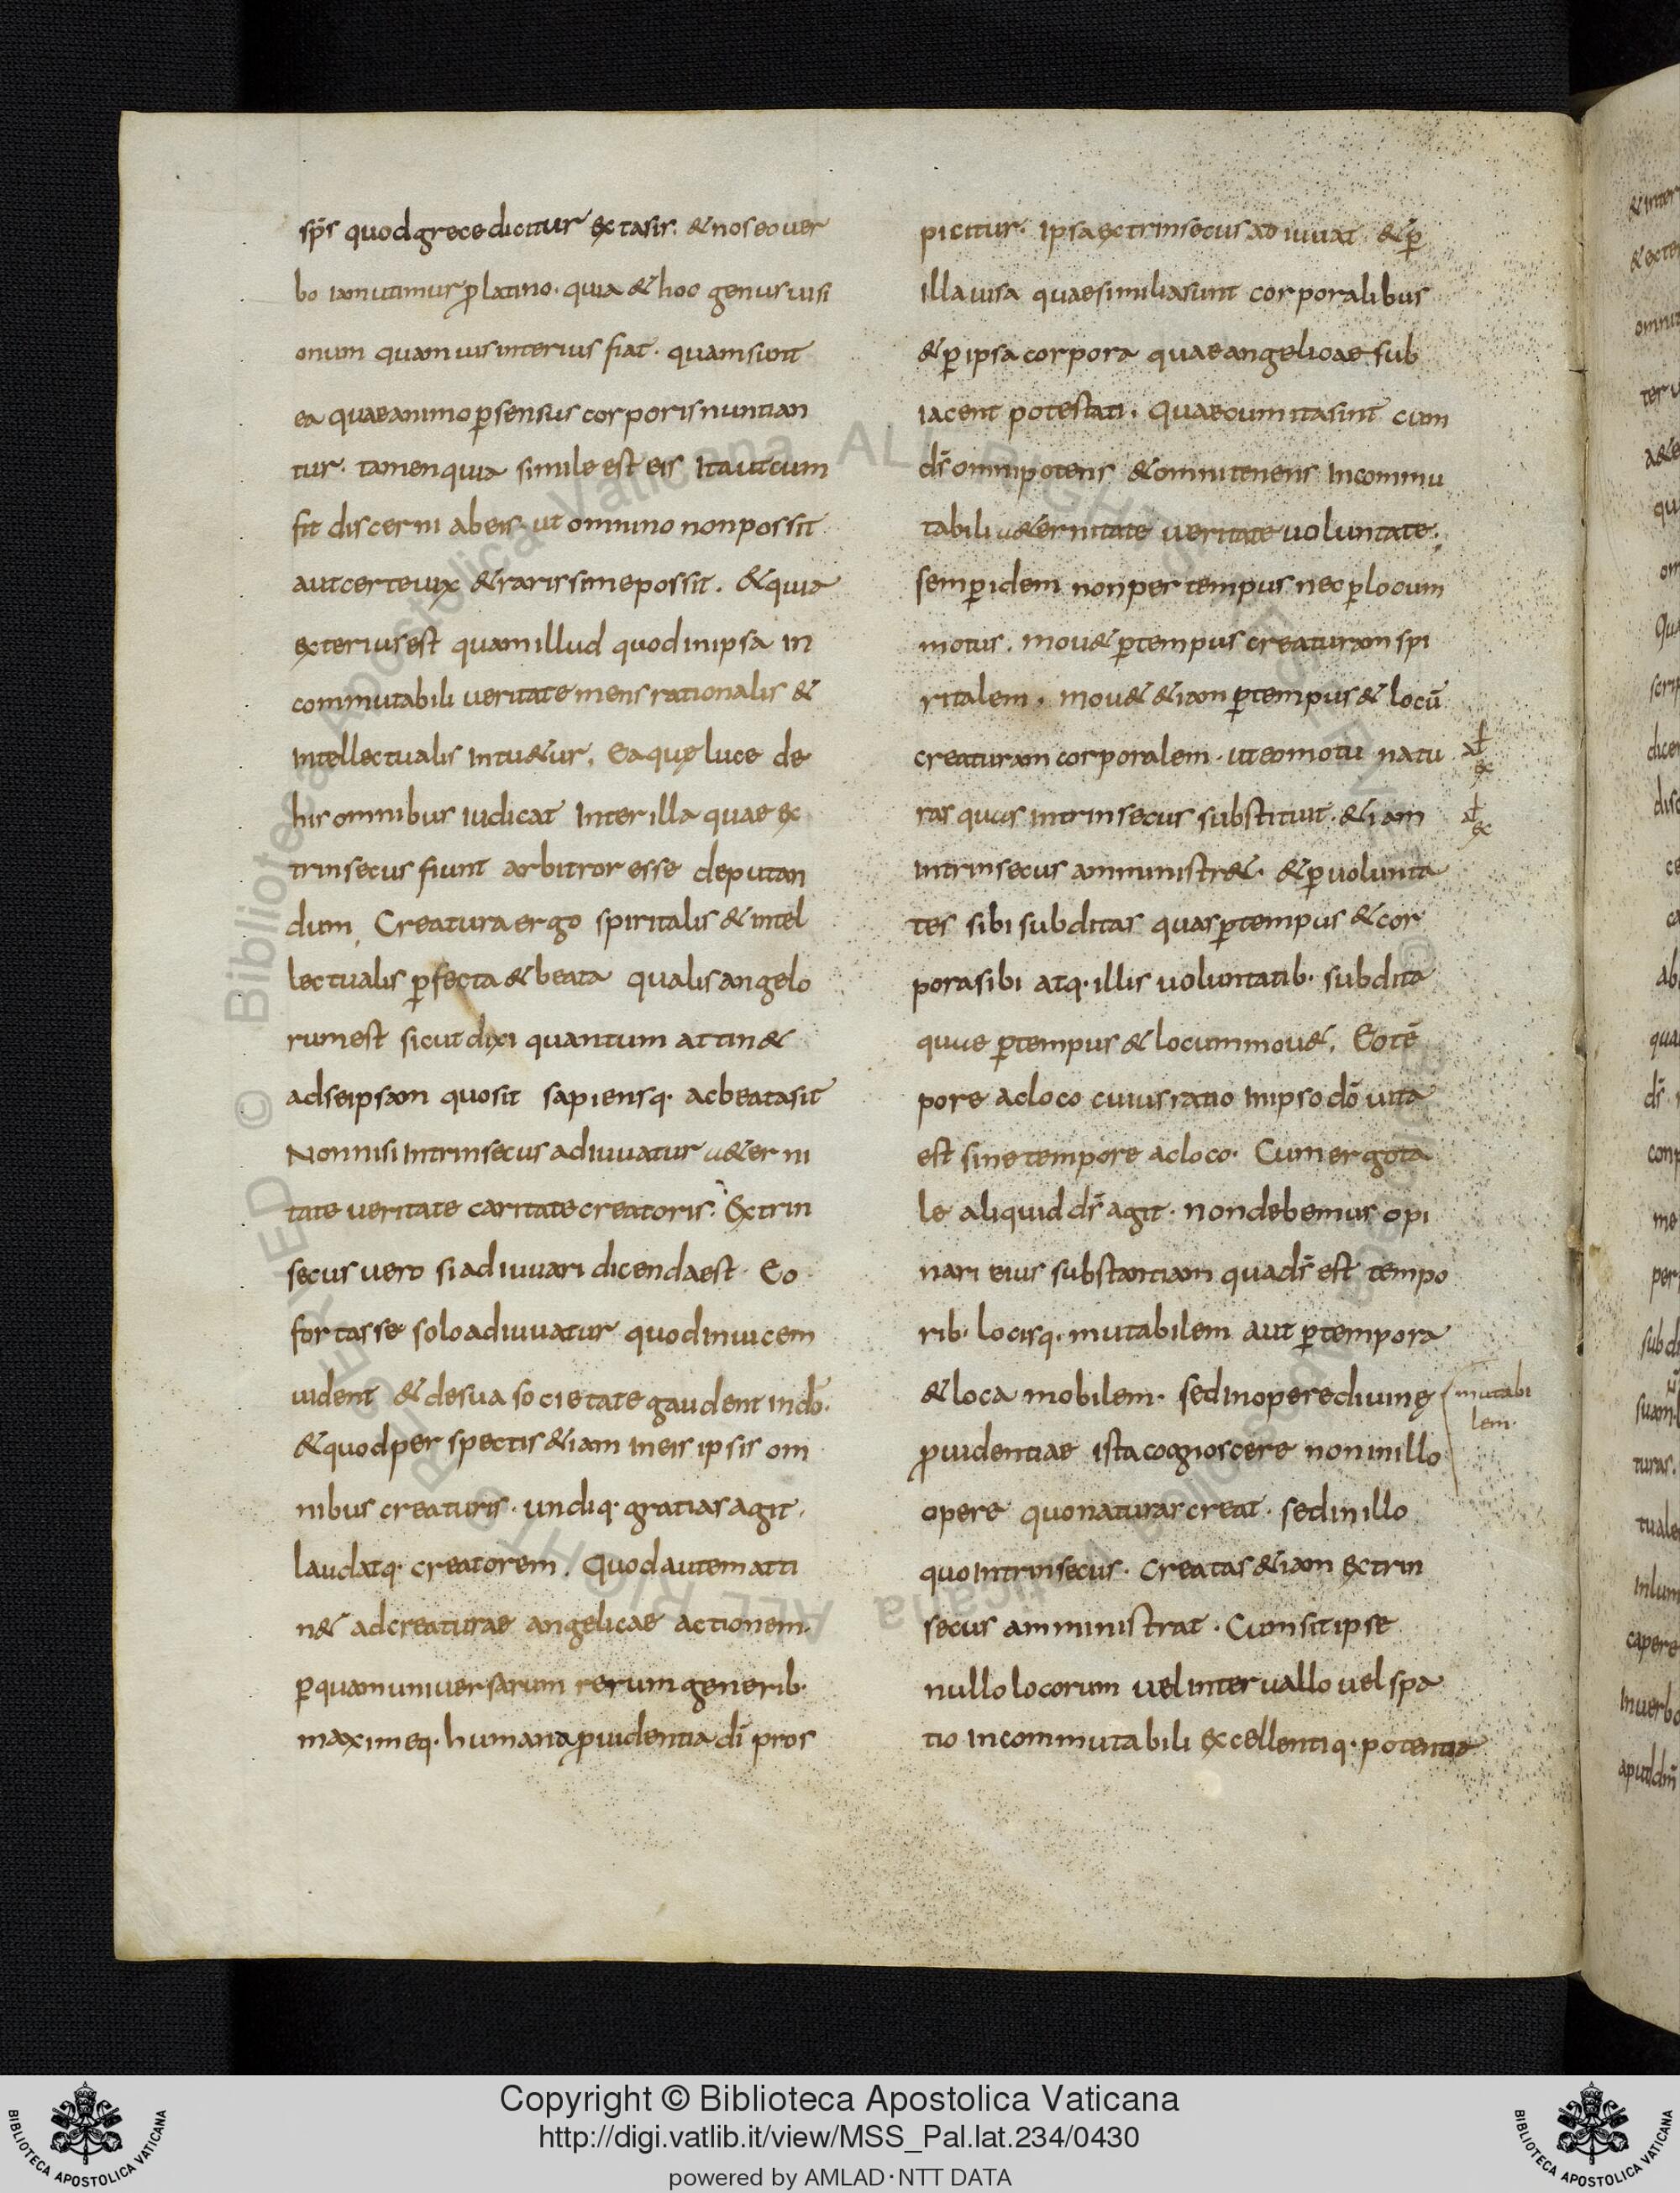 sp̄s quod grece dicitur extasis. & nos eo ver
bo iam utimur p latino. quia & hoc genus uisi
onum quamuis interius fiat. quam sunt
ea quae animo p sensus corporis nuntian
tur. tamen quia simile est eis Ita ut cum
fit discerni ab eis. ut omnino non possit
aut certe uix & rarissime possit. & quia
exterius est quam illud quod in ipsa in
commutabili veritate mens rationalis &
Intellectualis Intu&ur. Eaquę luce de
his omnibus iudicat Inter illa quae ex
trinsecus fiunt arbitror esse deputan
dum. Creatura ergo spiritalis & intel
lectualis pfecta & beata qualis angelo
rum est sicut dixi quantum attin&
ad seipsam quo sit sapiensq. ac beata sit
Non nisi Intrinsecus adiuuatur a&erni
tate veritate caritate creatoris. Extrin
secus vero si adiuuari dicenda est. Eo
fortasse solo adiuuatur quod inuicem
uident & de sua societate gaudent in dō.
& quod perspectis &iam in eis ipsis om
nibus creaturis. undiq. gratias agit.
laudatq. creatorem. Quod autem atti
n& ad creaturae angelicae actionem.
p quam universarum rerum generib.
maximeq. humana puidentia dī pros
picitur. Ipsa extrinsecus adiuuat. & p
illa uisa quae similia sunt corporalibus
& p ipsa corpora quae angelicae sub
iacent potestati. Quae cum ita sint cum
ds̄ omnipotens & omnitenens Incommu
tabili a&ernitate veritate uoluntate.
semp idem non per tempus nec p locum
motus. mou& p tempus creaturam spi
ritalem. mou& &iam p tempus & locū
creaturam corporalem. ut eo motu natu
ras quas intrinsecus substituit. &iam
intrinsecus amministr&. & p uolunta
tes sibi subditas quas p tempus & cor
pora sibi atq. illis uoluntatib. subdita
quae p tempus & locum mou&. Eo tē
pore ac loco cuius ratio In ipso dō uita
est sine tempore ac loco. Cum ergo ta
le aliquid ds̄ agit. non debemus opi
nari eius substantiam qua ds̄ est tempo
rib. locisq. mutabilem aut p tempora
& loca mobilem. sed in opere diuinę
puidentiae ista cognoscere non in illo
opere quo naturas creat. sed in illo
quo Intrinsecus. creatas &iam extrin
secus amministrat. Cum sit ipse
nullo locorum vel interuallo uel spa
tio Incommutabili excellentiq. potentia
al ex
al ex
mutabi
lem.
Copyright © Biblioteca Apostolica Vaticana
http://digi.vatlib.it/view/MSS_Pal.lat.234/0430
powered by AMLAD·NTT DATA
BIBLIOTECA APOSTOLICA VATICANA
BIBLIOTECA APOSTOLICA VATICANA